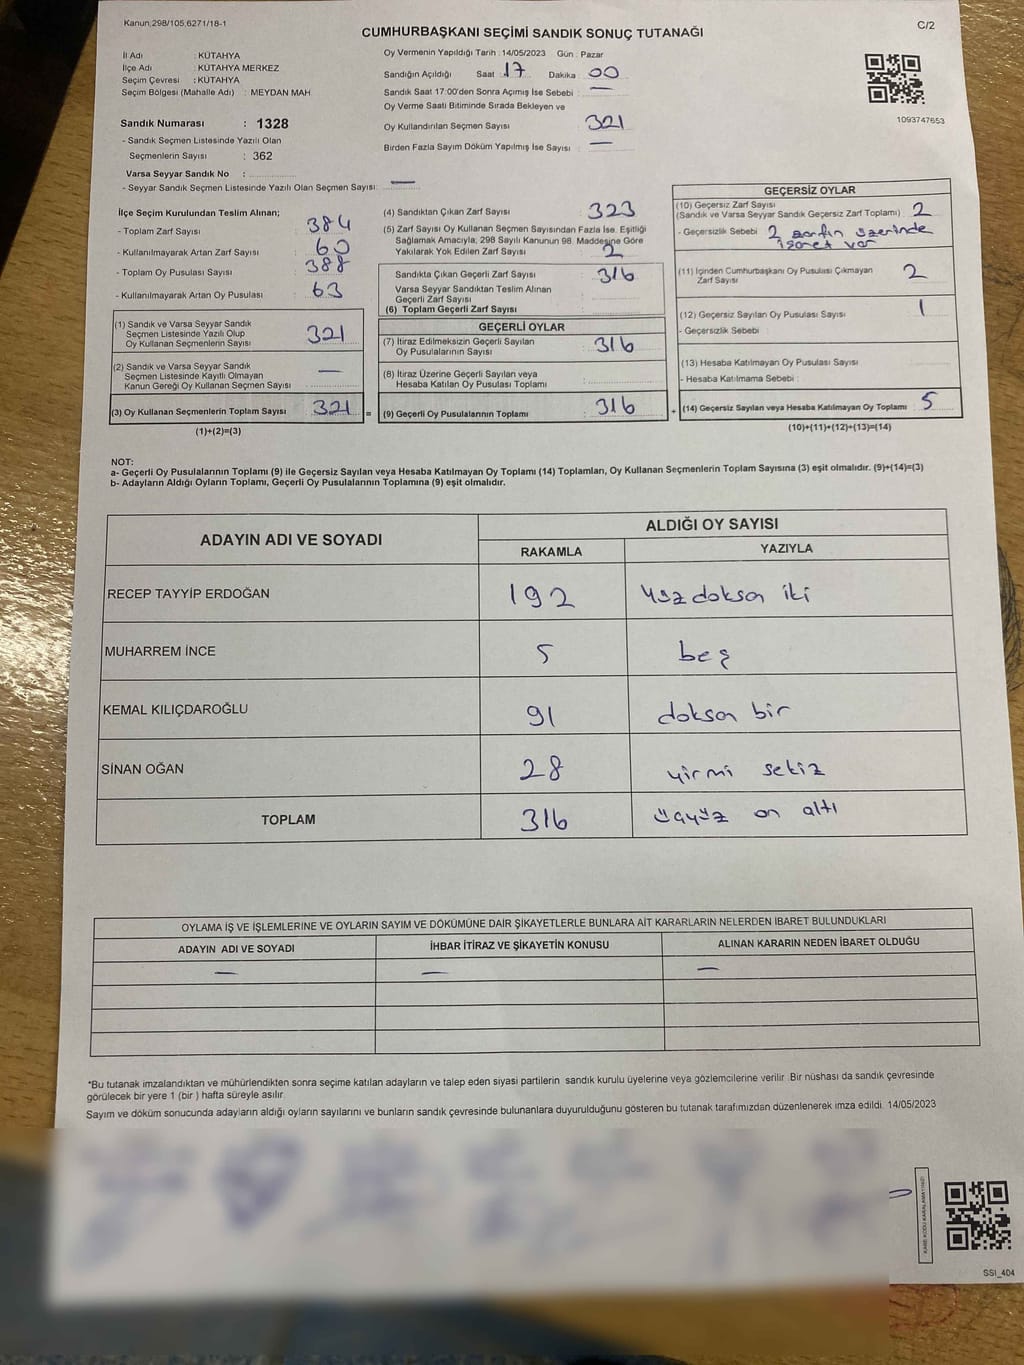 Kanun,298/105,6271/18-1
C/2
CUMHURBAŞKANI SEÇİMİ SANDIK SONUÇ TUTANAĞI
İl Adı : KÜTAHYA
İlçe Adı : KÜTAHYA MERKEZ
Seçim Çevresi : KÜTAHYA
Seçim Bölgesi (Mahalle Adı) : MEYDAN MAH.
Sandık Numarası : 1328
- Sandık Seçmen Listesinde Yazılı Olan
Seçmenlerin Sayısı : 362
Varsa Seyyar Sandık No :
- Seyyar Sandık Seçmen Listesinde Yazılı Olan Seçmen Sayısı: —
Oy Vermenin Yapıldığı Tarih : 14/05/2023 Gün : Pazar
Sandığın Açıldığı Saat : 17 Dakika : 00
Sandık Saat 17:00'den Sonra Açımış İse Sebebi : —
Oy Verme Saati Bitiminde Sırada Bekleyen ve
Oy Kullandırılan Seçmen Sayısı : 321
Birden Fazla Sayım Döküm Yapılmış İse Sayısı : —
1093747653
İlçe Seçim Kurulundan Teslim Alınan;
- Toplam Zarf Sayısı : 384
- Kullanılmayarak Artan Zarf Sayısı : 60
- Toplam Oy Pusulası Sayısı : 388
- Kullanılmayarak Artan Oy Pusulası : 63
(1) Sandık ve Varsa Seyyar Sandık
Seçmen Listesinde Yazılı Olup
Oy Kullanan Seçmenlerin Sayısı : 321
(2) Sandık ve Varsa Seyyar Sandık
Seçmen Listesinde Kayıtlı Olmayan
Kanun Gereği Oy Kullanan Seçmen Sayısı : —
(3) Oy Kullanan Seçmenlerin Toplam Sayısı : 321 =
(1)+(2)=(3)
(4) Sandıktan Çıkan Zarf Sayısı : 323
(5) Zarf Sayısı Oy Kullanan Seçmen Sayısından Fazla İse, Eşitliği
Sağlamak Amacıyla, 298 Sayılı Kanunun 98. Maddesine Göre
Yakılarak Yok Edilen Zarf Sayısı : 2
Sandıkta Çıkan Geçerli Zarf Sayısı : 316
Varsa Seyyar Sandıktan Teslim Alınan
Geçerli Zarf Sayısı :
(6) Toplam Geçerli Zarf Sayısı :
GEÇERLİ OYLAR
(7) İtiraz Edilmeksizin Geçerli Sayılan
Oy Pusulalarının Sayısı : 316
(8) İtiraz Üzerine Geçerli Sayılan veya
Hesaba Katılan Oy Pusulası Toplamı :
(9) Geçerli Oy Pusulalarının Toplamı : 316 +
GEÇERSİZ OYLAR
(10) Geçersiz Zarf Sayısı
(Sandık ve Varsa Seyyar Sandık Geçersiz Zarf Toplamı) : 2
- Geçersizlik Sebebi : 2 zarfın üzerinde
işaret var
(11) İçinden Cumhurbaşkanı Oy Pusulası Çıkmayan
Zarf Sayısı : 2
(12) Geçersiz Sayılan Oy Pusulası Sayısı : 1
- Geçersizlik Sebebi :
(13) Hesaba Katılmayan Oy Pusulası Sayısı :
- Hesaba Katılmama Sebebi :
(14) Geçersiz Sayılan veya Hesaba Katılmayan Oy Toplamı : 5
(10)+(11)+(12)+(13)=(14)
NOT:
a- Geçerli Oy Pusulalarının Toplamı (9) ile Geçersiz Sayılan veya Hesaba Katılmayan Oy Toplamı (14) Toplamları, Oy Kullanan Seçmenlerin Toplam Sayısına (3) eşit olmalıdır. (9)+(14)=(3)
b- Adayların Aldığı Oyların Toplamı, Geçerli Oy Pusulalarının Toplamına (9) eşit olmalıdır.
ADAYIN ADI VE SOYADI
ALDIĞI OY SAYISI
RAKAMLA YAZIYLA
RECEP TAYYİP ERDOĞAN 192 yüz doksan iki
MUHARREM İNCE 5 beş
KEMAL KILIÇDAROĞLU 91 doksan bir
SİNAN OĞAN 28 yirmi sekiz
TOPLAM 316 üçyüz on altı
OYLAMA İŞ VE İŞLEMLERİNE VE OYLARIN SAYIM VE DÖKÜMÜNE DAİR ŞİKAYETLERLE BUNLARA AİT KARARLARIN NELERDEN İBARET BULUNDUKLARI
ADAYIN ADI VE SOYADI İHBAR İTİRAZ VE ŞİKAYETİN KONUSU ALINAN KARARIN NEDEN İBARET OLDUĞU
— — —
*Bu tutanak imzalandıktan ve mühürlendikten sonra seçime katılan adayların ve talep eden siyasi partilerin sandık kurulu üyelerine veya gözlemcilerine verilir. Bir nüshası da sandık çevresinde
görülecek bir yere 1 (bir ) hafta süreyle asılır.
Sayım ve döküm sonucunda adayların aldığı oyların sayılarını ve bunların sandık çevresinde bulunanlara duyurulduğunu gösteren bu tutanak tarafımızdan düzenlenerek imza edildi. 14/05/2023
SSI_404